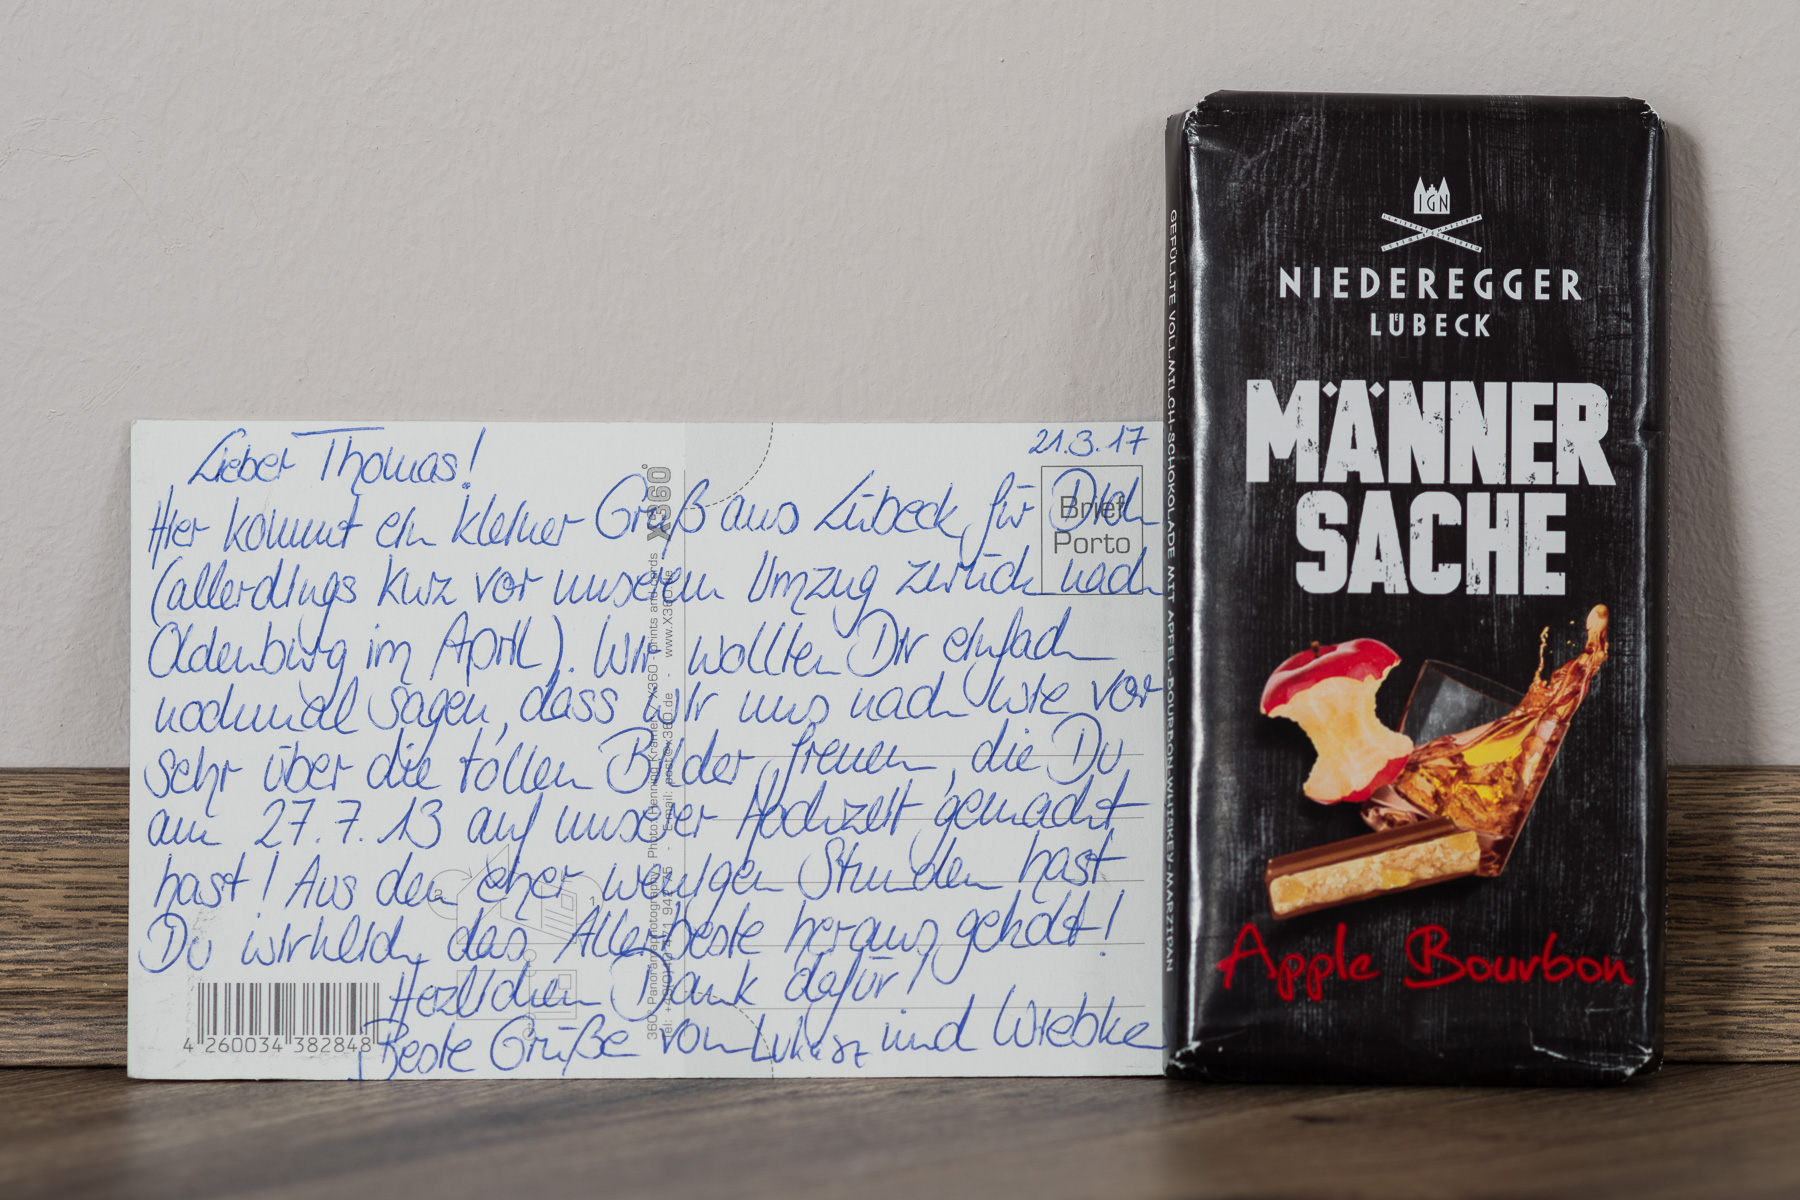 Lieber Thomas!
21.3.17
Hier kommt ein kleiner Gruß aus Lübeck für Dich
(allerdings kurz vor unserem Umzug zurück nach
Oldenburg im April). Wir wollten Dir einfach
nochmal sagen, dass wir uns nach wie vor
sehr über die tollen Bilder freuen, die Du
am 27.7.13 auf unserer Hochzeit gemacht
hast! Aus den eher wenigen Stunden hast
Du wirklich das Allerbeste herausgeholt!
Herzlichen Dank dafür!
Beste Grüße von Lukasz und Wiebke
Brief
Porto
X360°
360° Panoramaphotography, Photo: Henning Kramer / X360 - prints and cards
- E-mail: post@x360.de - www.X360.de
4 260034 382848
IGN
NIEDEREGGER
LÜBECK
MÄNNER
SACHE
Apple Bourbon
GEFÜLLTE VOLLMILCH-SCHOKOLADE MIT APFEL-BOURBON-WHISKEY-MARZIPAN